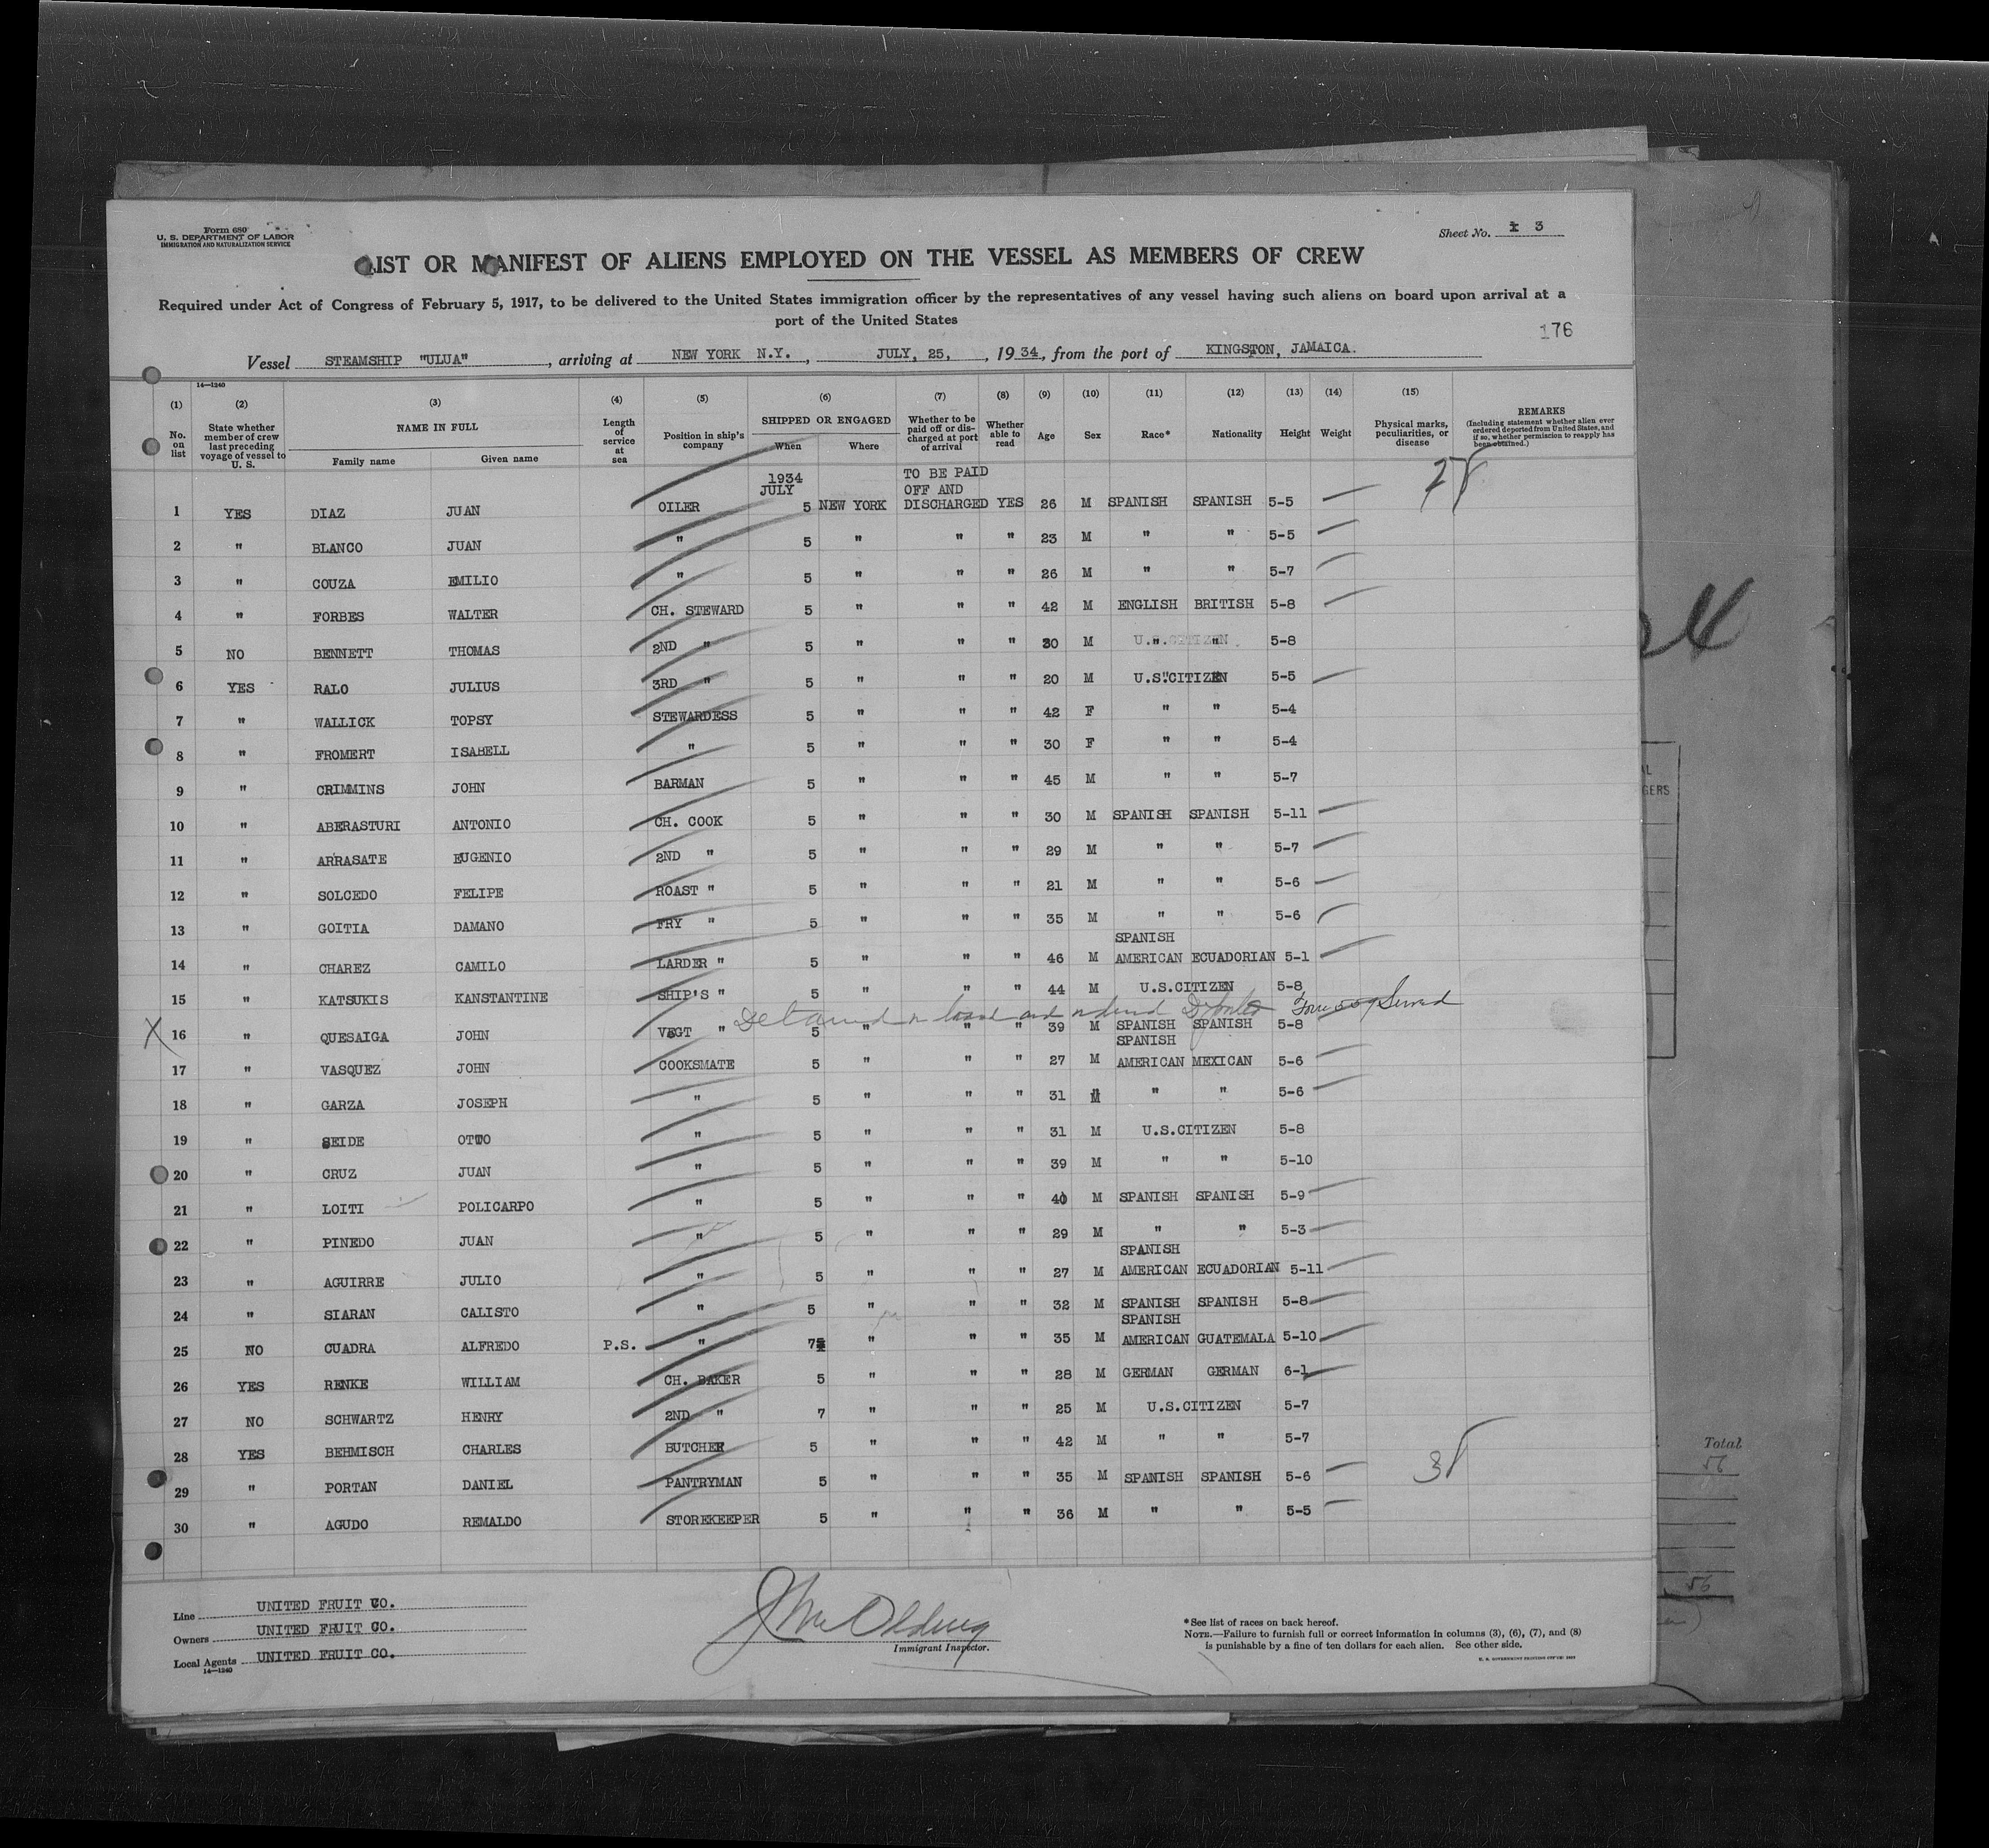 Form 680
U. S. DEPARTMENT OF LABOR
IMMIGRATION AND NATURALIZATION SERVICE
Sheet No. 3
LIST OR MANIFEST OF ALIENS EMPLOYED ON THE VESSEL AS MEMBERS OF CREW
Required under Act of Congress of February 5, 1917, to be delivered to the United States immigration officer by the representatives of any vessel having such aliens on board upon arrival at a
port of the United States
176
Vessel STEAMSHIP "ULUA", arriving at NEW YORK N.Y., JULY, 25, 1934, from the port of KINGSTON, JAMAICA.
14—1240
(1) No. on list (2) State whether member of crew last preceding voyage of vessel to U. S. (3) NAME IN FULL Family name Given name (4) Length of service at sea (5) Position in ship's company (6) SHIPPED OR ENGAGED When Where (7) Whether to be paid off or discharged at port of arrival (8) Whether able to read (9) Age (10) Sex (11) Race* (12) Nationality (13) Height (14) Weight (15) Physical marks, peculiarities, or disease REMARKS (Including statement whether alien ever ordered deported from United States, and if so, whether permission to reapply has been obtained.)
1934 JULY TO BE PAID OFF AND
1 YES DIAZ JUAN OILER 5 NEW YORK DISCHARGED YES 26 M SPANISH SPANISH 5-5
2 " BLANCO JUAN " 5 " " " 23 M " " 5-5
3 " COUZA EMILIO " 5 " " " 26 M " " 5-7
4 " FORBES WALTER CH. STEWARD 5 " " " 42 M ENGLISH BRITISH 5-8
5 NO BENNETT THOMAS 2ND " 5 " " " 30 M " " 5-8
6 YES RALO JULIUS 3RD " 5 " " " 20 M U.S.CITIZEN 5-5
7 " WALLICK TOPSY STEWARDESS 5 " " " 42 F " " 5-4
8 " FROMERT ISABELL " 5 " " " 30 F " " 5-4
9 " CRIMMINS JOHN BARMAN 5 " " " 45 M " " 5-7
10 " ABERASTURI ANTONIO CH. COOK 5 " " " 30 M SPANISH SPANISH 5-11
11 " ARRASATE EUGENIO 2ND " 5 " " " 29 M " " 5-7
12 " SOLCEDO FELIPE ROAST " 5 " " " 21 M " " 5-6
13 " GOITIA DAMANO FRY " 5 " " " 35 M " " 5-6
14 " CHAREZ CAMILO LARDER " 5 " " " 46 M SPANISH AMERICAN ECUADORIAN 5-1
15 " KATSUKIS KANSTANTINE SHIP'S " 5 " " " 44 M U.S.CITIZEN 5-8
Detained on board and Served
X 16 " QUESAIGA JOHN VEGT " 5 " " " 39 M SPANISH SPANISH 5-8
17 " VASQUEZ JOHN COOKSMATE 5 " " " 27 M SPANISH AMERICAN MEXICAN 5-6
18 " GARZA JOSEPH " 5 " " " 31 M " " 5-6
19 " SEIDE OTTO " 5 " " " 31 M U.S.CITIZEN 5-8
20 " CRUZ JUAN " 5 " " " 39 M " " 5-10
21 " LOITI POLICARPO " 5 " " " 40 M SPANISH SPANISH 5-9
22 " PINEDO JUAN " 5 " " " 29 M " " 5-3
23 " AGUIRRE JULIO " 5 " " " 27 M SPANISH AMERICAN ECUADORIAN 5-11
24 " SIARAN CALISTO " 5 " " " 32 M SPANISH SPANISH 5-8
25 NO CUADRA ALFREDO P.S. " 7 " " " 35 M SPANISH AMERICAN GUATEMALA 5-10
26 YES RENKE WILLIAM CH. BAKER 5 " " " 28 M GERMAN GERMAN 6-1
27 NO SCHWARTZ HENRY 2ND " 7 " " " 25 M U.S.CITIZEN 5-7
28 YES BEHMISCH CHARLES BUTCHER 5 " " " 42 M " " 5-7
29 " PORTAN DANIEL PANTRYMAN 5 " " " 35 M SPANISH SPANISH 5-6
30 " AGUDO REMALDO STOREKEEPER 5 " " " 36 M " " 5-5
Line UNITED FRUIT CO.
Owners UNITED FRUIT CO.
Local Agents UNITED FRUIT CO.
14—1240
Immigrant Inspector.
*See list of races on back hereof.
NOTE.—Failure to furnish full or correct information in columns (3), (6), (7), and (8)
is punishable by a fine of ten dollars for each alien. See other side.
Total
56
56